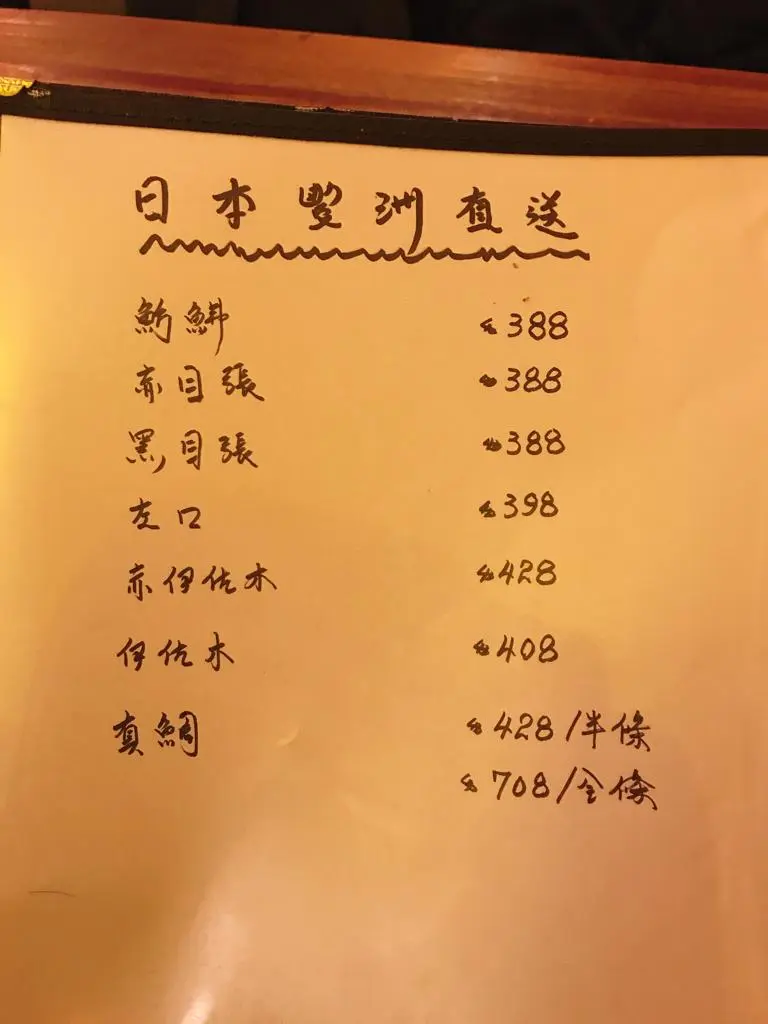 日本豐洲直送
$388
赤目張 $388
黑目張 $388
左口 $398
赤伊佐木 $428
伊佐木 $408
真鯛 $428/半條
$708/全條